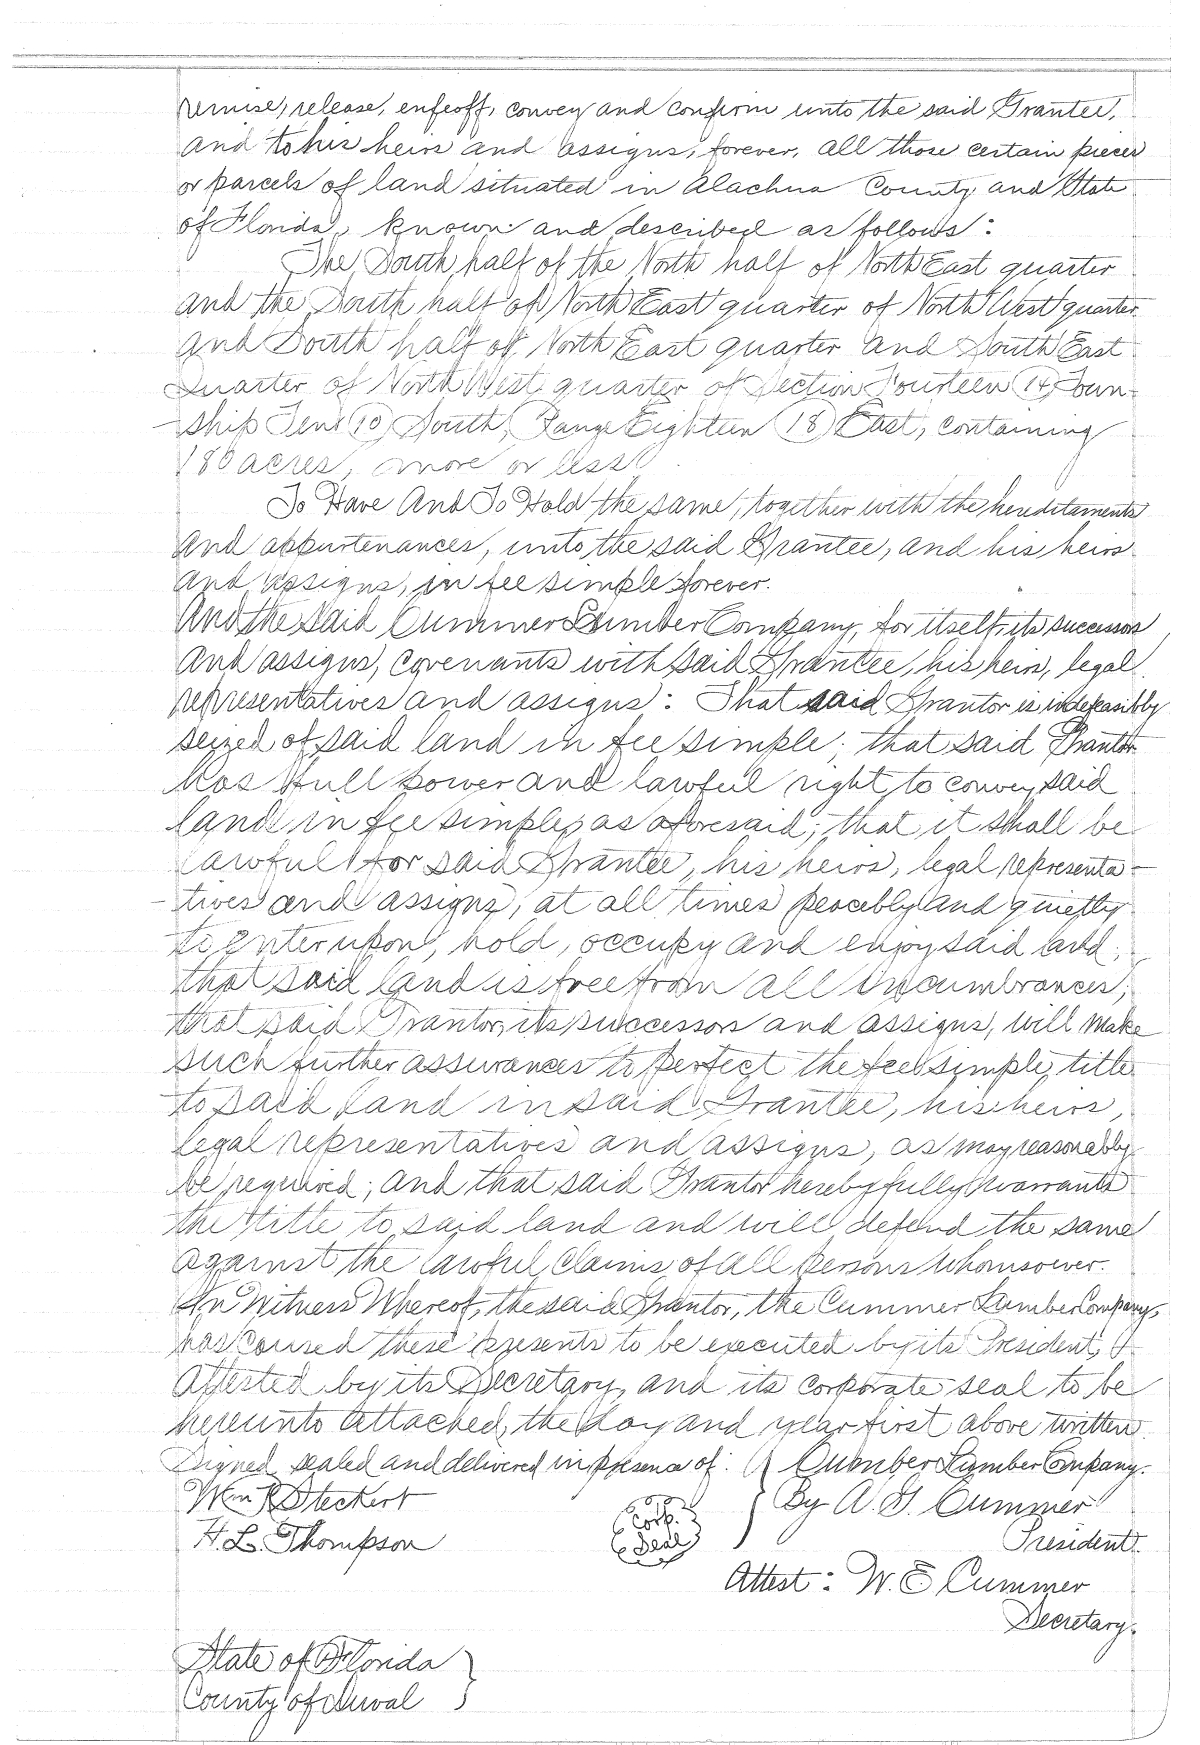 remise, release, enfeoff, convey and confirm unto the said Grantee,
and to his heirs and assigns, forever, all those certain pieces
or parcels of land situated in Alachua County and State
of Florida, known and described as follows:
The South half of the North half of North East quarter
and the South half of North East quarter of North West quarter
and South half of North East quarter and South East
Quarter of North West quarter of Section Fourteen (14) Town-
-ship Ten (10) South, Range Eighteen (18) East, containing
180 acres, more or less.
To Have And To Hold the same, together with the hereditaments
and appurtenances, unto the said Grantee, and his heirs
and assigns, in fee simple forever.
And the said Cummer Lumber Company, for itself, its successors
and assigns, covenants with said Grantee, his heirs, legal
representatives and assigns: That said Grantor is indefeasibly
seized of said land in fee simple; that said Grantor
has full power and lawful right to convey said
land in fee simple, as aforesaid; that it shall be
lawful for said Grantee, his heirs, legal representa-
-tives and assigns, at all times peacebly and quietly
to enter upon, hold, occupy and enjoy said land;
that said land is free from all incumbrances;
that said Grantor, its successors and assigns, will make
such further assurances to perfect the fee simple title
to said land in said Grantee, his heirs,
legal representatives and assigns, as may reasonably
be required; and that said Grantor hereby fully warrants
the title to said land and will defend the same
against the lawful claims of all persons whomsoever.
In Witness Whereof, the said Grantor, the Cummer Lumber Company,
has caused these presents to be executed by its President, &
attested by its Secretary, and its corporate seal to be
hereunto attached, the day and year first above written.
Signed, sealed and delivered in presence of: Cummer Lumber Company.
Wm R Steckert By A. G. Cummer
H. L. Thompson Corp. Seal President.
Attest: W. E Cummer
Secretary.
State of Florida
County of Duval